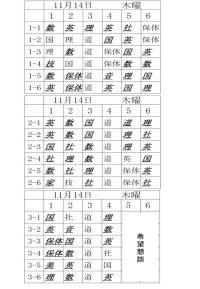 11月14日 木曜
1 2 3 4 5 6
1-1 数 英 理 英 社 保体
1-2 国 理 道 国 英 保体
1-3 理 数 道 保体 国 英
1-4 技 国 道 保体 数
1-5 数 保体 道 音 理 国
1-6 英 保体 道 英 国
11月14日 木曜
1 2 3 4 5 6
2-1 英 数 国 道 理
2-2 数 英 国 道 社
2-3 国 社 数 道 理 数
2-4 社 理 数 道 英 国
2-5 理 数 社 道 保体 英
2-6 家 技 社 道 保体
11月14日 木曜
1 2 3 4 5 6
3-1 国 社 道 理
3-2 英 音 道 数
3-3 保体 国 道 英
3-4 数 保体 道 英
3-5 美 英 道 国
3-6 理 数 道 英
希望懇談